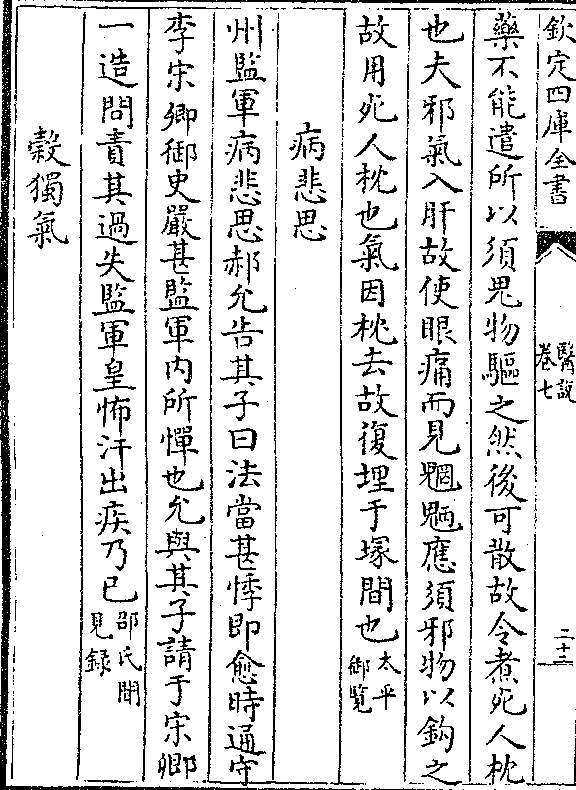 欽定四庫全書
醫說
卷七
二十二
藥不能遣所以須鬼物驅之然後可散故令煮死人枕
也夫邪氣入肝故使眼痛而見魍魎應須邪物以鈎之
故用死人枕也氣因枕去故復埋于塚間也太平御覽
病悲思
州監軍病悲思郝允告其子曰法當甚悸即愈時通守
李宋卿御史嚴甚監軍内所憚也允與其子請于宋卿
一造問責其過失監軍皇怖汗出疾乃已邵氏聞見録
穀獨氣